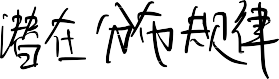 潜在分布规律